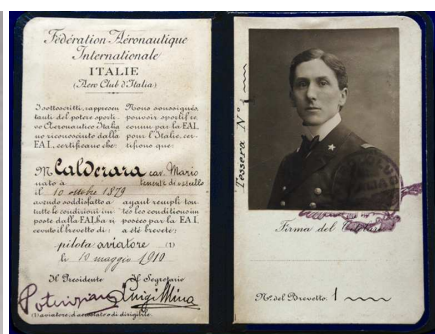 Fédération Aéronautique
Internationale
ITALIE
(Aero Club d'Italia)
I sottoscritti, rappresen
tanti del potere sporti-
vo Aeronautico Italia
no riconosciuto dalla
F.A.I., certificano che:
Nous soussignés,
pouvoir sportif re
connu par la F.A.I.
pour l'Italie, cer-
tifions que:
M Calderara cav. Mario
nato a
tenente di vascello
il 10 ottobre 1879
avendo soddisfatto a
tutte le condizioni im
poste dalla F.A.I. ha ri
cevuto il brevetto di:
ayant rempli tou
tes les conditions im
posées par la F.A.I.
a été breveté:
pilota aviatore (1)
le 12 maggio 1910.
Il Presidente
Il Segretario
Luigi Mina
(1) aviatore, d'aerostato o di dirigibile.
Tessera N° 1
Firma del
N° del Brevetto: 1